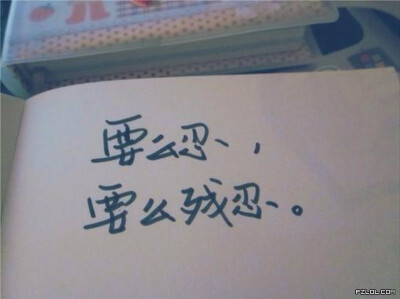 要么忍，
要么残忍。
PZLOL.COM